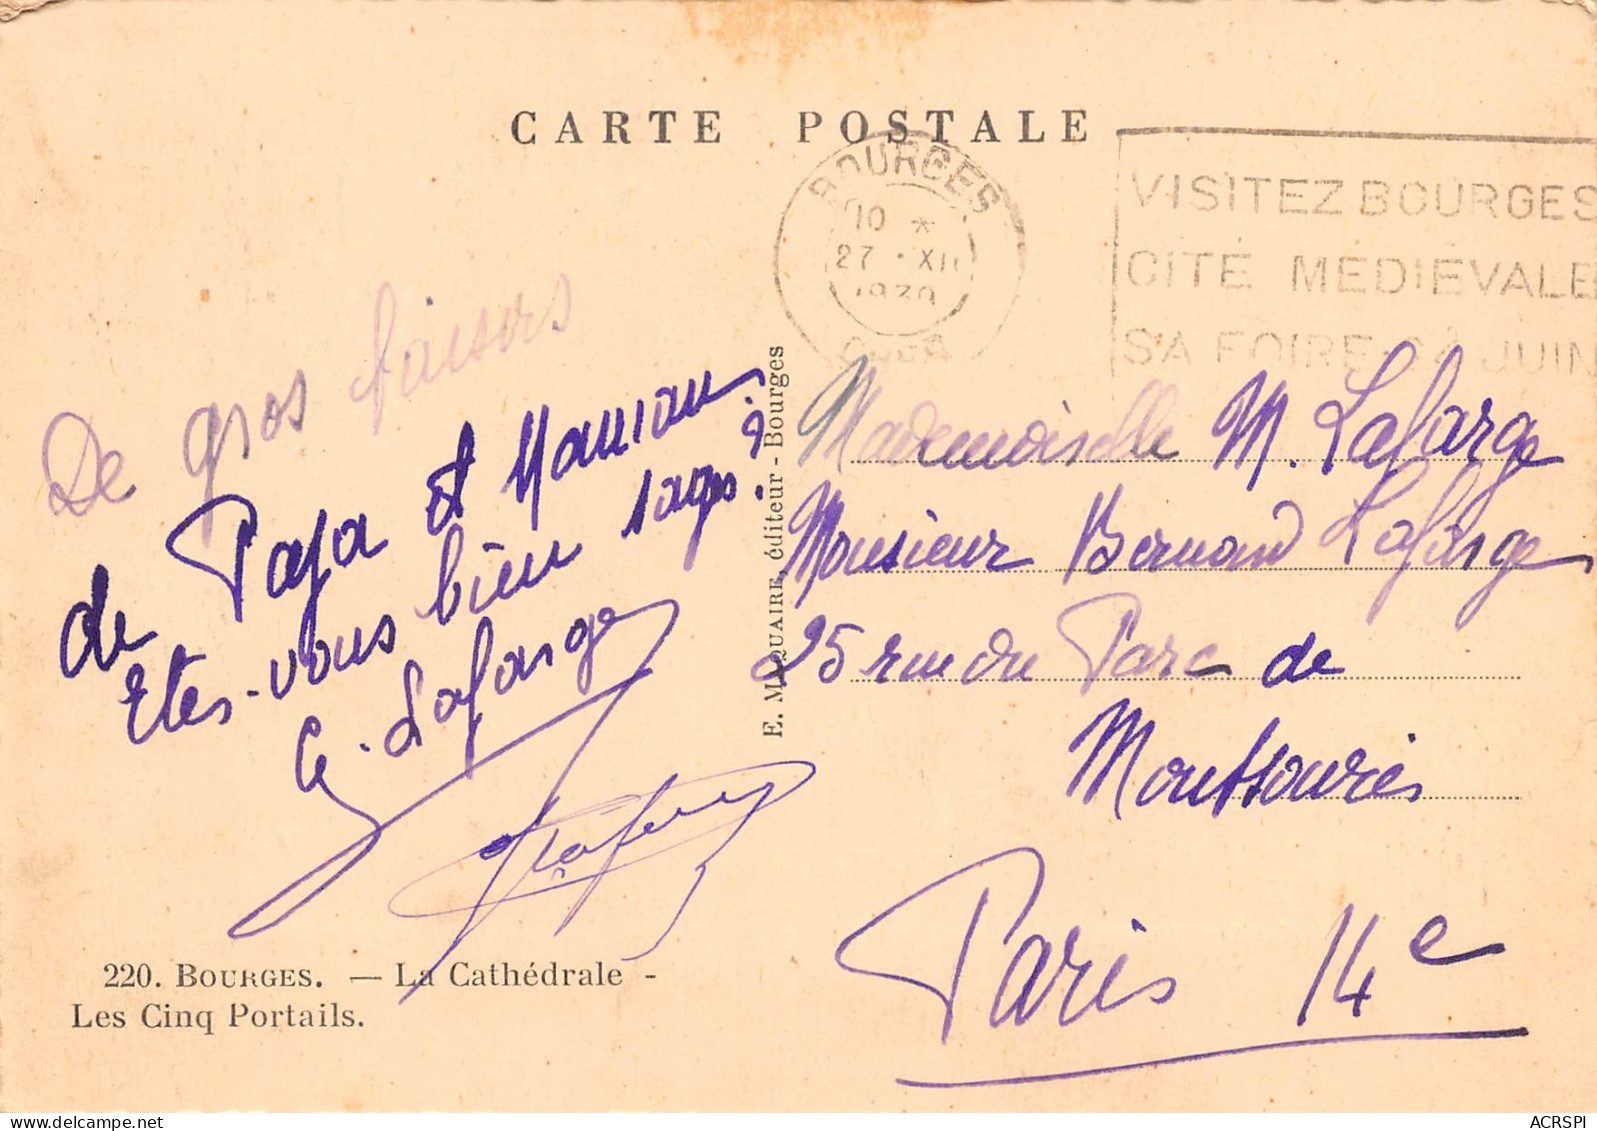 CARTE POSTALE
BOURGES
10 *
27 · XII
1939
CHER
VISITEZ BOURGES
CITÉ MÉDIÉVALE
SA FOIRE 24 JUIN
De gros baisers
de Papa et Maman.
Etes-vous bien sages?
G. Lafarge
Lafarge
E. MAQUAIRE, éditeur - Bourges
Mademoiselle M. Lafarge
Monsieur Bernard Lafarge
25 rue du Parc de
Montsouris
Paris 14e
220. BOURGES. — La Cathédrale -
Les Cinq Portails.
ACRSPI